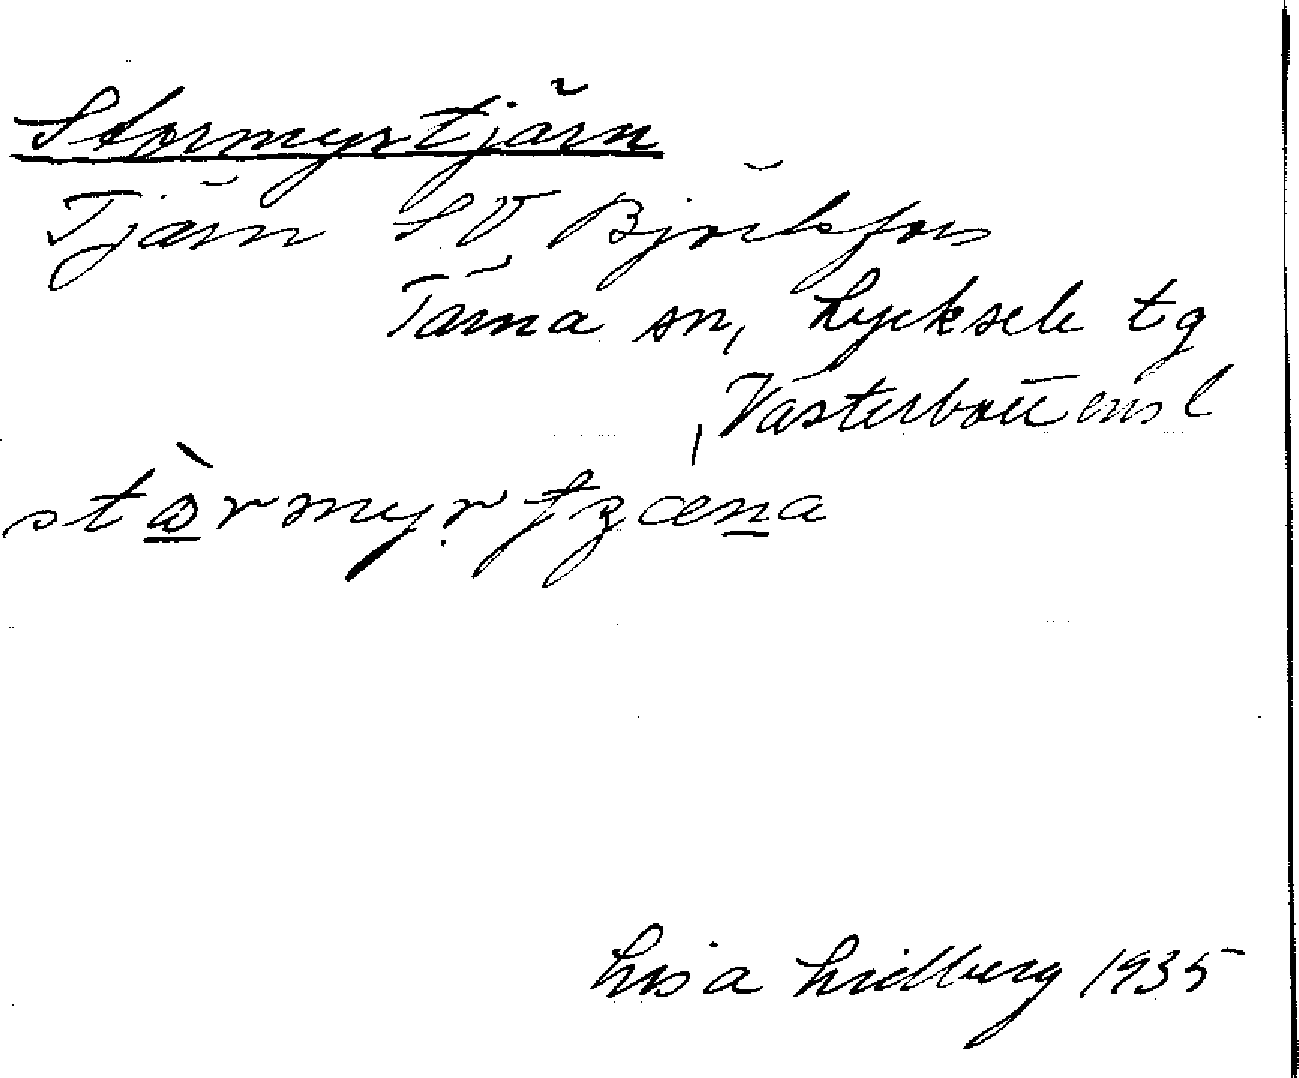 Stormyrtjärn
Tjärn SV Björkfors
Tärna sn, Lycksele tg
Västerbottens l
Lisa Lidberg 1935